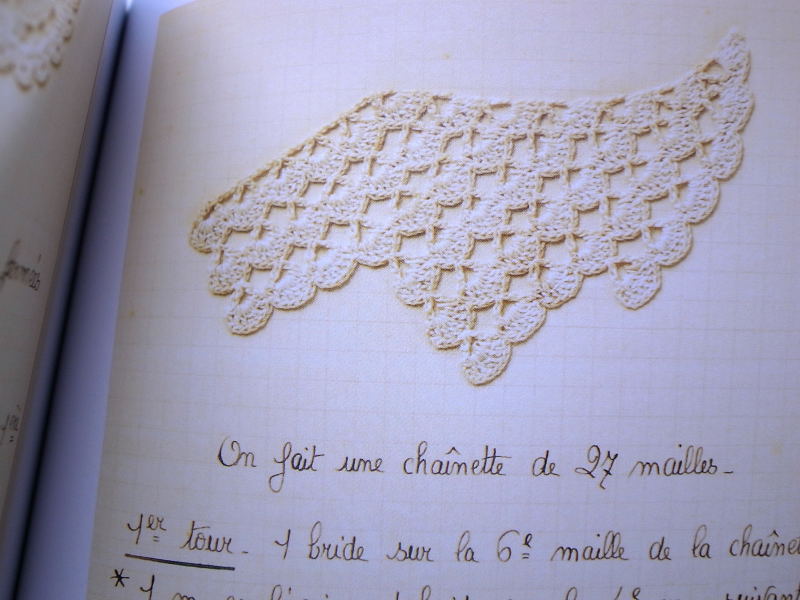 On fait une chaînette de 27 mailles_
1er tour_ 1 bride sur la 6e maille de la chaînet
* 1 m
suivant